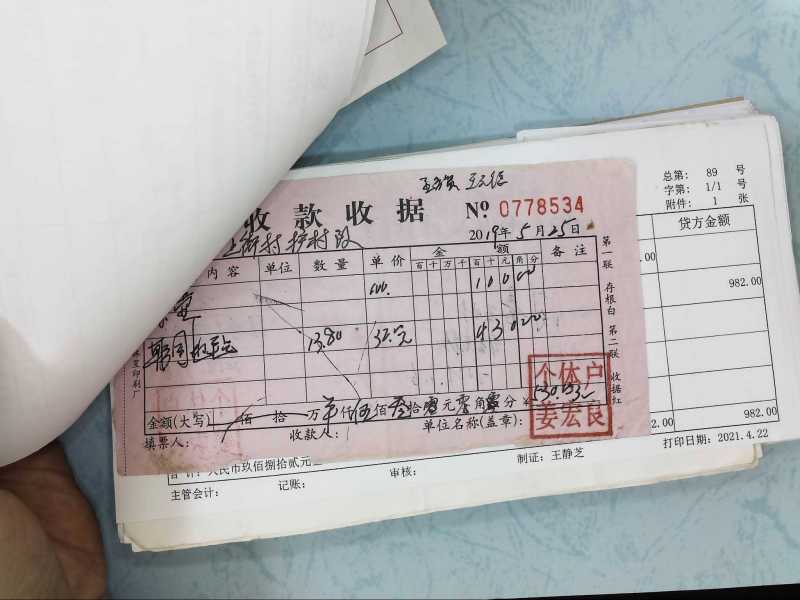 总第: 89 号
字第: 1/1 号
附件: 1 张
收款收据 No 0778534
2019年5月25日
村护村队
内容 单位 数量 单价 金额 备注
百十万千百十元角分
贷方金额
100.00
982.00
13.80 430.00
第一联 存根白 第二联 收据红
金额(大写) 佰 拾 万 零仟伍佰叁拾零元零角零分 ¥530.00
个体户
姜宏良
填票人: 收款人: 单位名称(盖章):
982.00
合计: 人民币玖佰捌拾贰元
打印日期: 2021.4.22
主管会计: 记账: 审核: 制证: 王静芝